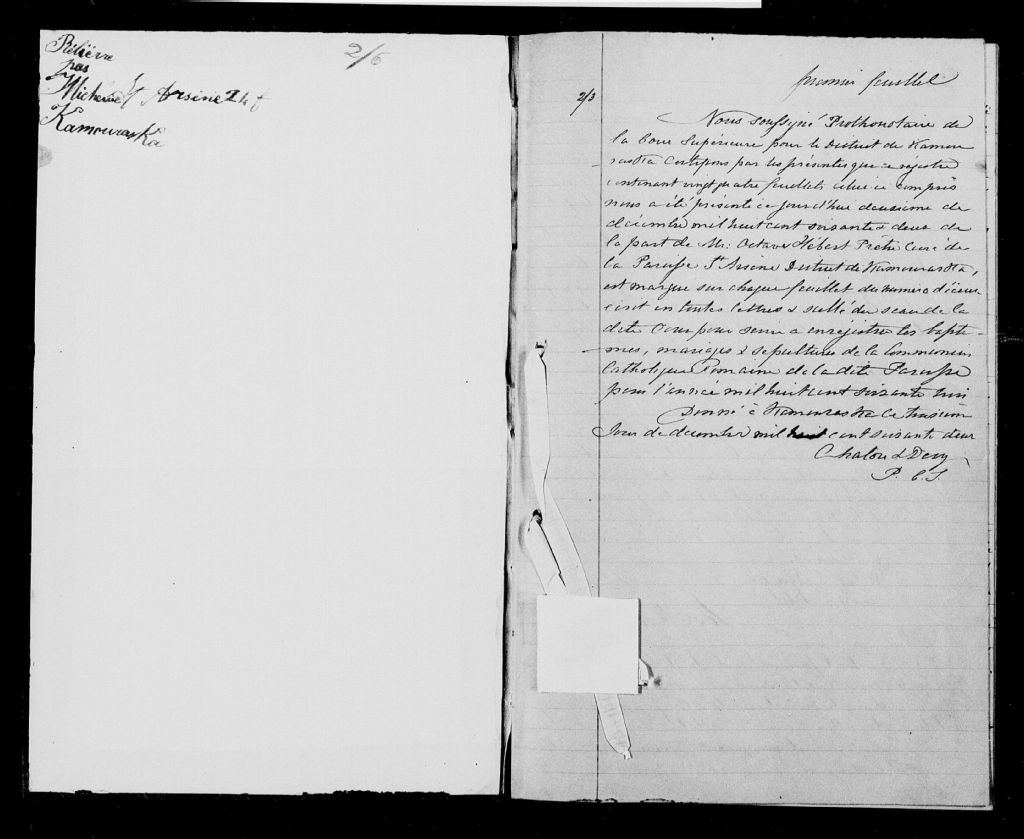 Relièvre
par
St Arsène
Kamouraska
2/6
premier feuillet
2/3
Nous soussigné Prothonotaire de
la Cour Supérieure pour le District de Kamou
raska certifions par les présentes que ce régistre
contenant vingt quatre feuillets celui ci compris
nous a été présenté ce jourd'hui deuxième de
décembre mil huit cent soixante & deux de
la part de Mr. Octave Hébert Prêtre Curé de
la Paroisse St Arsène District de Kamouraska,
est marqué sur chaque feuillet du numéro d'icelui
écrit en toutes lettres & scellé du sceau de la
dite Cour pour servir a enrégistrer les baptê-
mes, mariages & sépultures de la Communion
Catholique Romaine de la dite Paroisse
pour l'année mil huit cent soixante trois
Donné à Kamouraska ce troisième
Jour de décembre mil huit cent soixante deux
P. C. S.